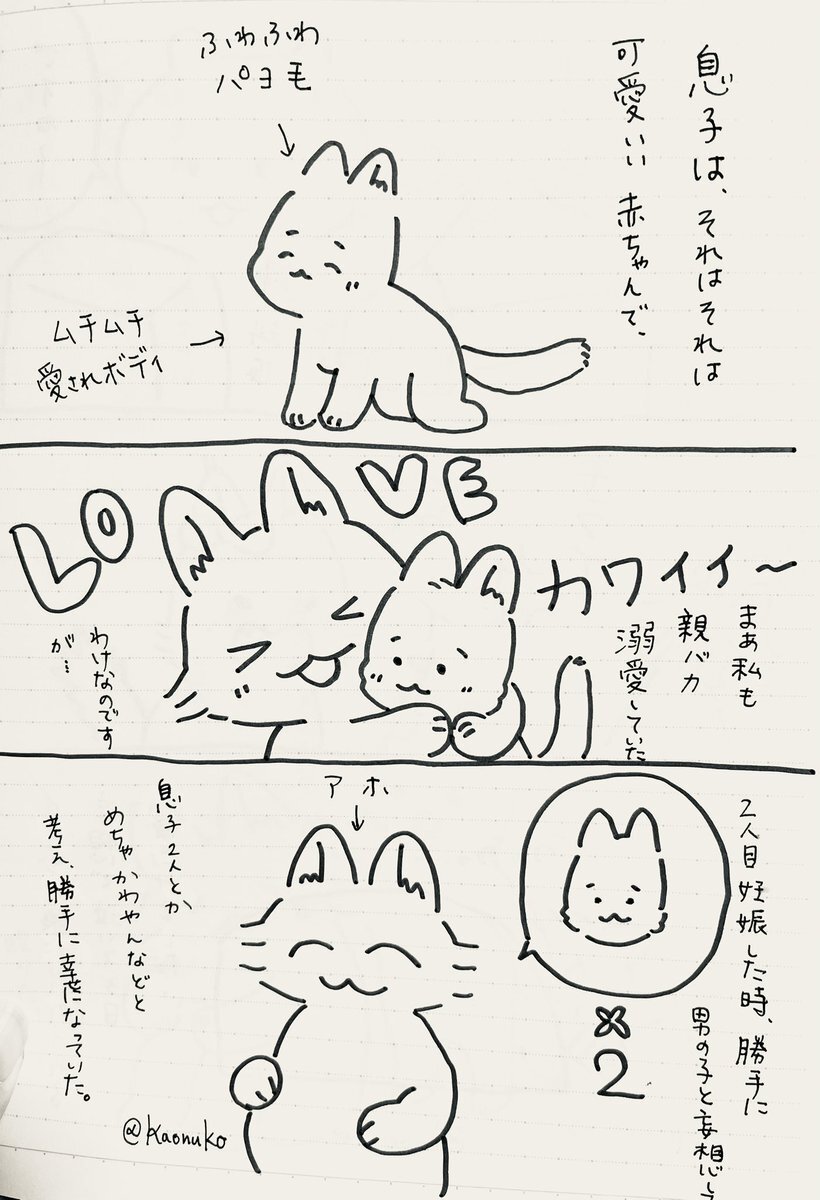 息子は、それはそれは
可愛いい赤ちゃんで、
ふわふわ
パヨ毛
ムチムチ
愛されボディ
LOVE
カワイイ〜
まぁ私も
親バカ
溺愛していた
わけなのです
が…
2人目妊娠した時、勝手に
男の子と妄想し
×
2
アホ
息子2人とか
めちゃかわやんなどと
考え、勝手に幸せになっていた。
@kaonuko